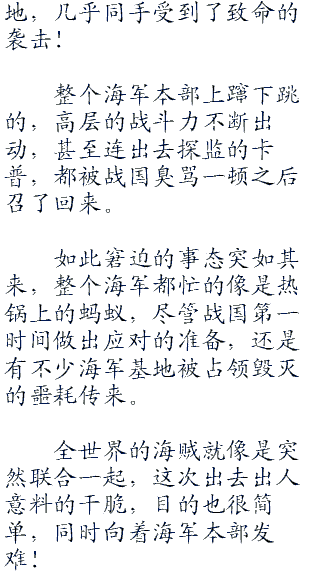 地，几乎同手受到了致命的
袭击！
整个海军本部上蹿下跳
的，高层的战斗力不断出
动，甚至连出去探监的卡
普，都被战国臭骂一顿之后
召了回来。
如此窘迫的事态突如其
来，整个海军都忙的像是热
锅上的蚂蚁，尽管战国第一
时间做出应对的准备，还是
有不少海军基地被占领毁灭
的噩耗传来。
全世界的海贼就像是突
然联合一起，这次出去出人
意料的干脆，目的也很简
单，同时向着海军本部发
难！